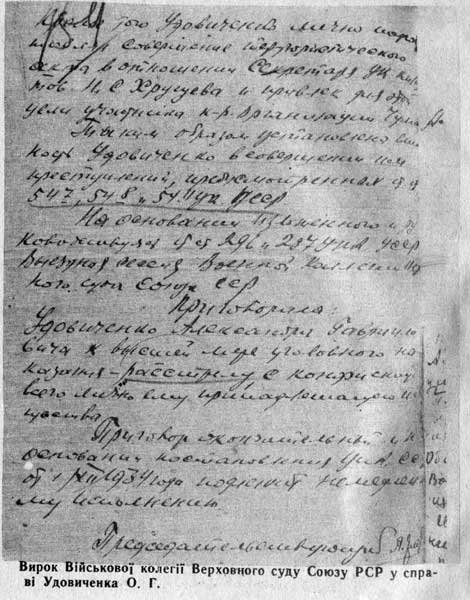 того Удовиченко лично
совершение террористического
акта в отношении Секретаря ЦК
тов. Н. С. Хрущева и привлек для этой
цели участника к.-р. организации
Таким образом установлена вин
ность Удовиченко в совершении им
преступлений, предусмотренных ст. ст.
54-7, 54-8 и 54-11 УК УССР
На основании изложенного и ру
ководствуясь ст. ст. 296 и 297 УПК УССР
Выездная сессия Военной Коллегии Вер
ного суда Союза ССР
Приговорила:
Удовиченко Александра Гаврило
вича к высшей мере уголовного на
казания – расстрелу с конфискац
всего лично ему принадлежащего и
щества
Приговор окончательный и на
основании постановления ЦИК СССР
от 1/XII 1934 года подлежит немедлен
му исполнению
Председательствующий
Вирок Військової колегії Верховного суду Союзу РСР у спра-
ві Удовиченка О. Г.